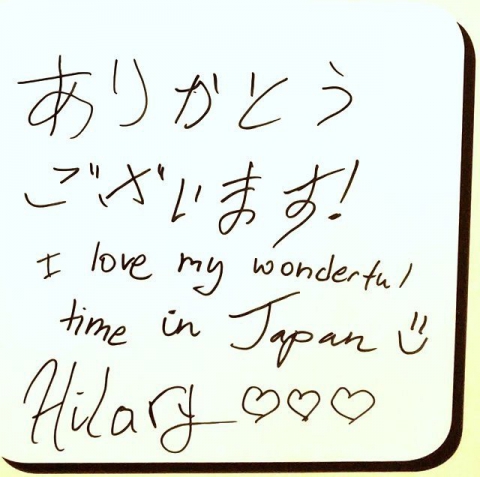 ありがとう
ございます!
I love my wonderful
time in Japan
Hilary ♡♡♡